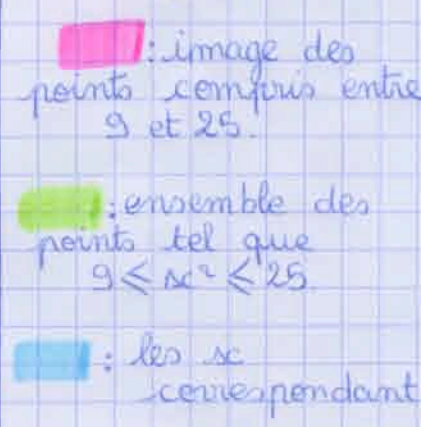 : image des
points compris entre
9 et 25.
: ensemble des
points tel que
9 ⩽ x² ⩽ 25
: les x
correspondant